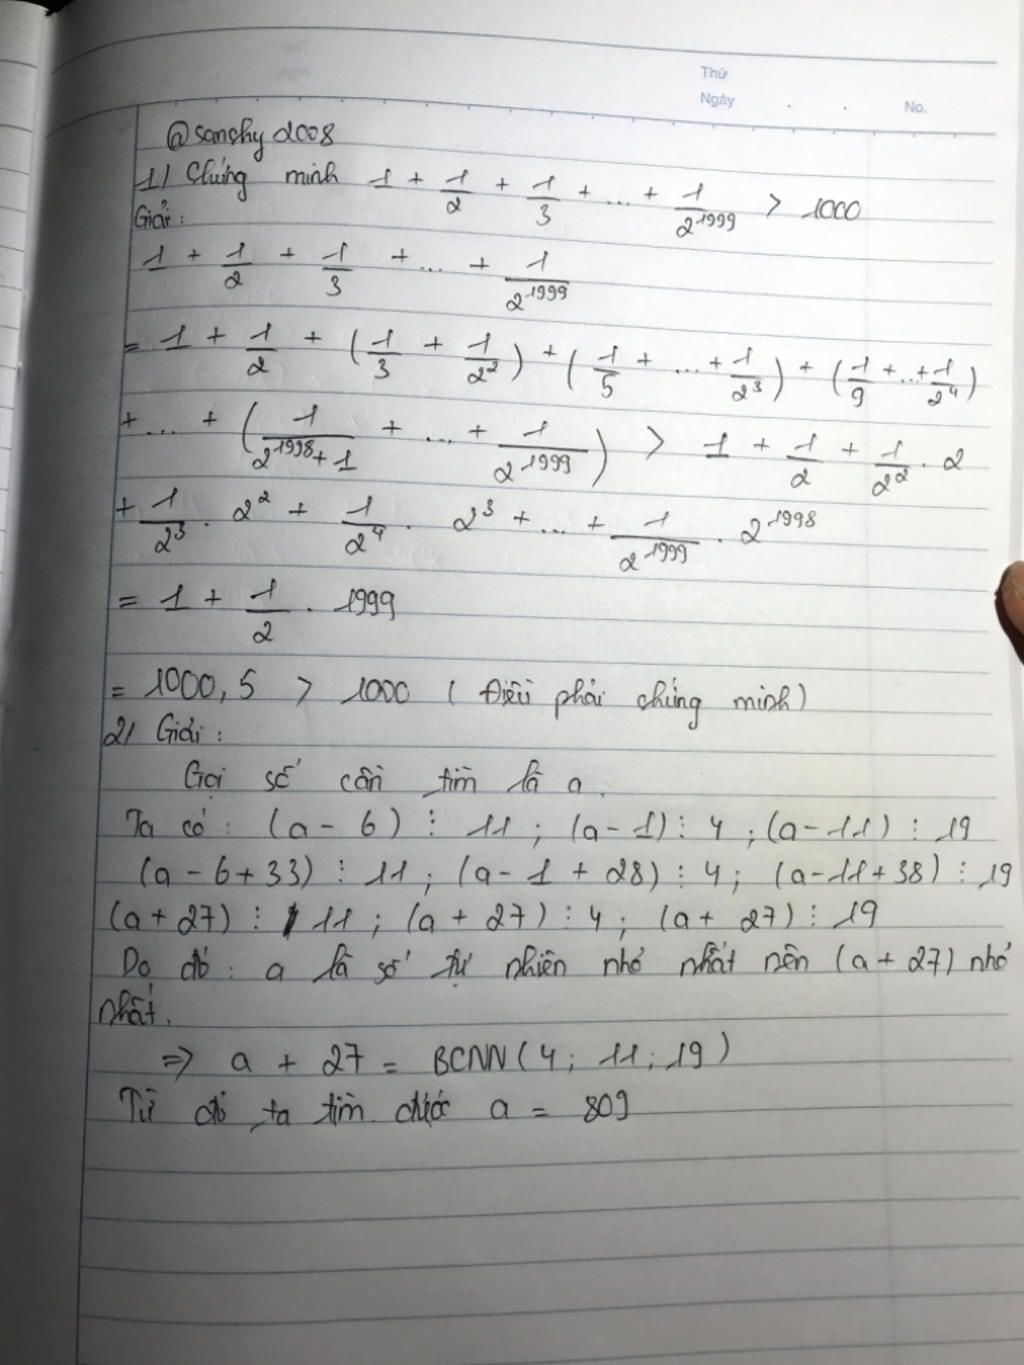 Thứ
Ngày . . No.
@sanshy2008
1/ Chứng minh 1 + 1/2 + 1/3 + ... + 1/2^1999 > 1000
Giải:
1 + 1/2 + 1/3 + ... + 1/2^1999
= 1 + 1/2 + (1/3 + 1/2^2) + (1/5 + ... + 1/2^3) + (1/9 + ... + 1/2^4)
+ ... + (1/2^1998+1 + ... + 1/2^1999) > 1 + 1/2 + 1/2^2 . 2
+ 1/2^3 . 2^2 + 1/2^4 . 2^3 + ... + 1/2^1999 . 2^1998
= 1 + 1/2 . 1999
= 1000,5 > 1000 (Điều phải chứng minh)
2/ Giải:
Gọi số cần tìm là a.
Ta có: (a - 6) ⋮ 11; (a - 1) ⋮ 4; (a - 11) ⋮ 19
(a - 6 + 33) ⋮ 11; (a - 1 + 28) ⋮ 4; (a - 11 + 38) ⋮ 19
(a + 27) ⋮ 11; (a + 27) ⋮ 4; (a + 27) ⋮ 19
Do đó: a là số tự nhiên nhỏ nhất nên (a + 27) nhỏ
nhất.
=> a + 27 = BCNN(4; 11; 19)
Từ đó ta tìm được a = 809